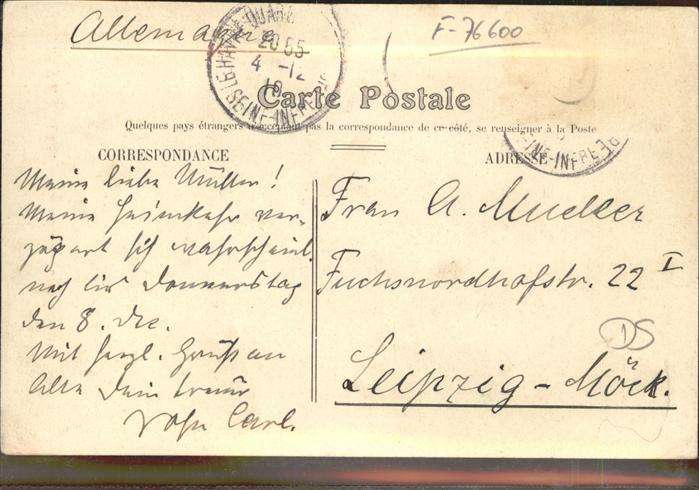 Allemagne
F-76600
LE HAVRE QUAI
20 55
4 -12
SEINE-INFRE
Carte Postale
Quelques pays étrangers n'acceptant pas la correspondance de ce côté, se renseigner à la Poste
CORRESPONDANCE
ADRESSE
INE-INFRE
Meine liebe Mutter!
Meine Heimkehr ver-
zögert sich wahrscheinl.
noch bis Donnerstag
den 8. Dec.
Mit herzl. Gruss an
Alle Dein treuer
Sohn Carl.
Frau A. Muecker
Fuchsnordhofstr. 22 I
DS
Leipzig-Möck.